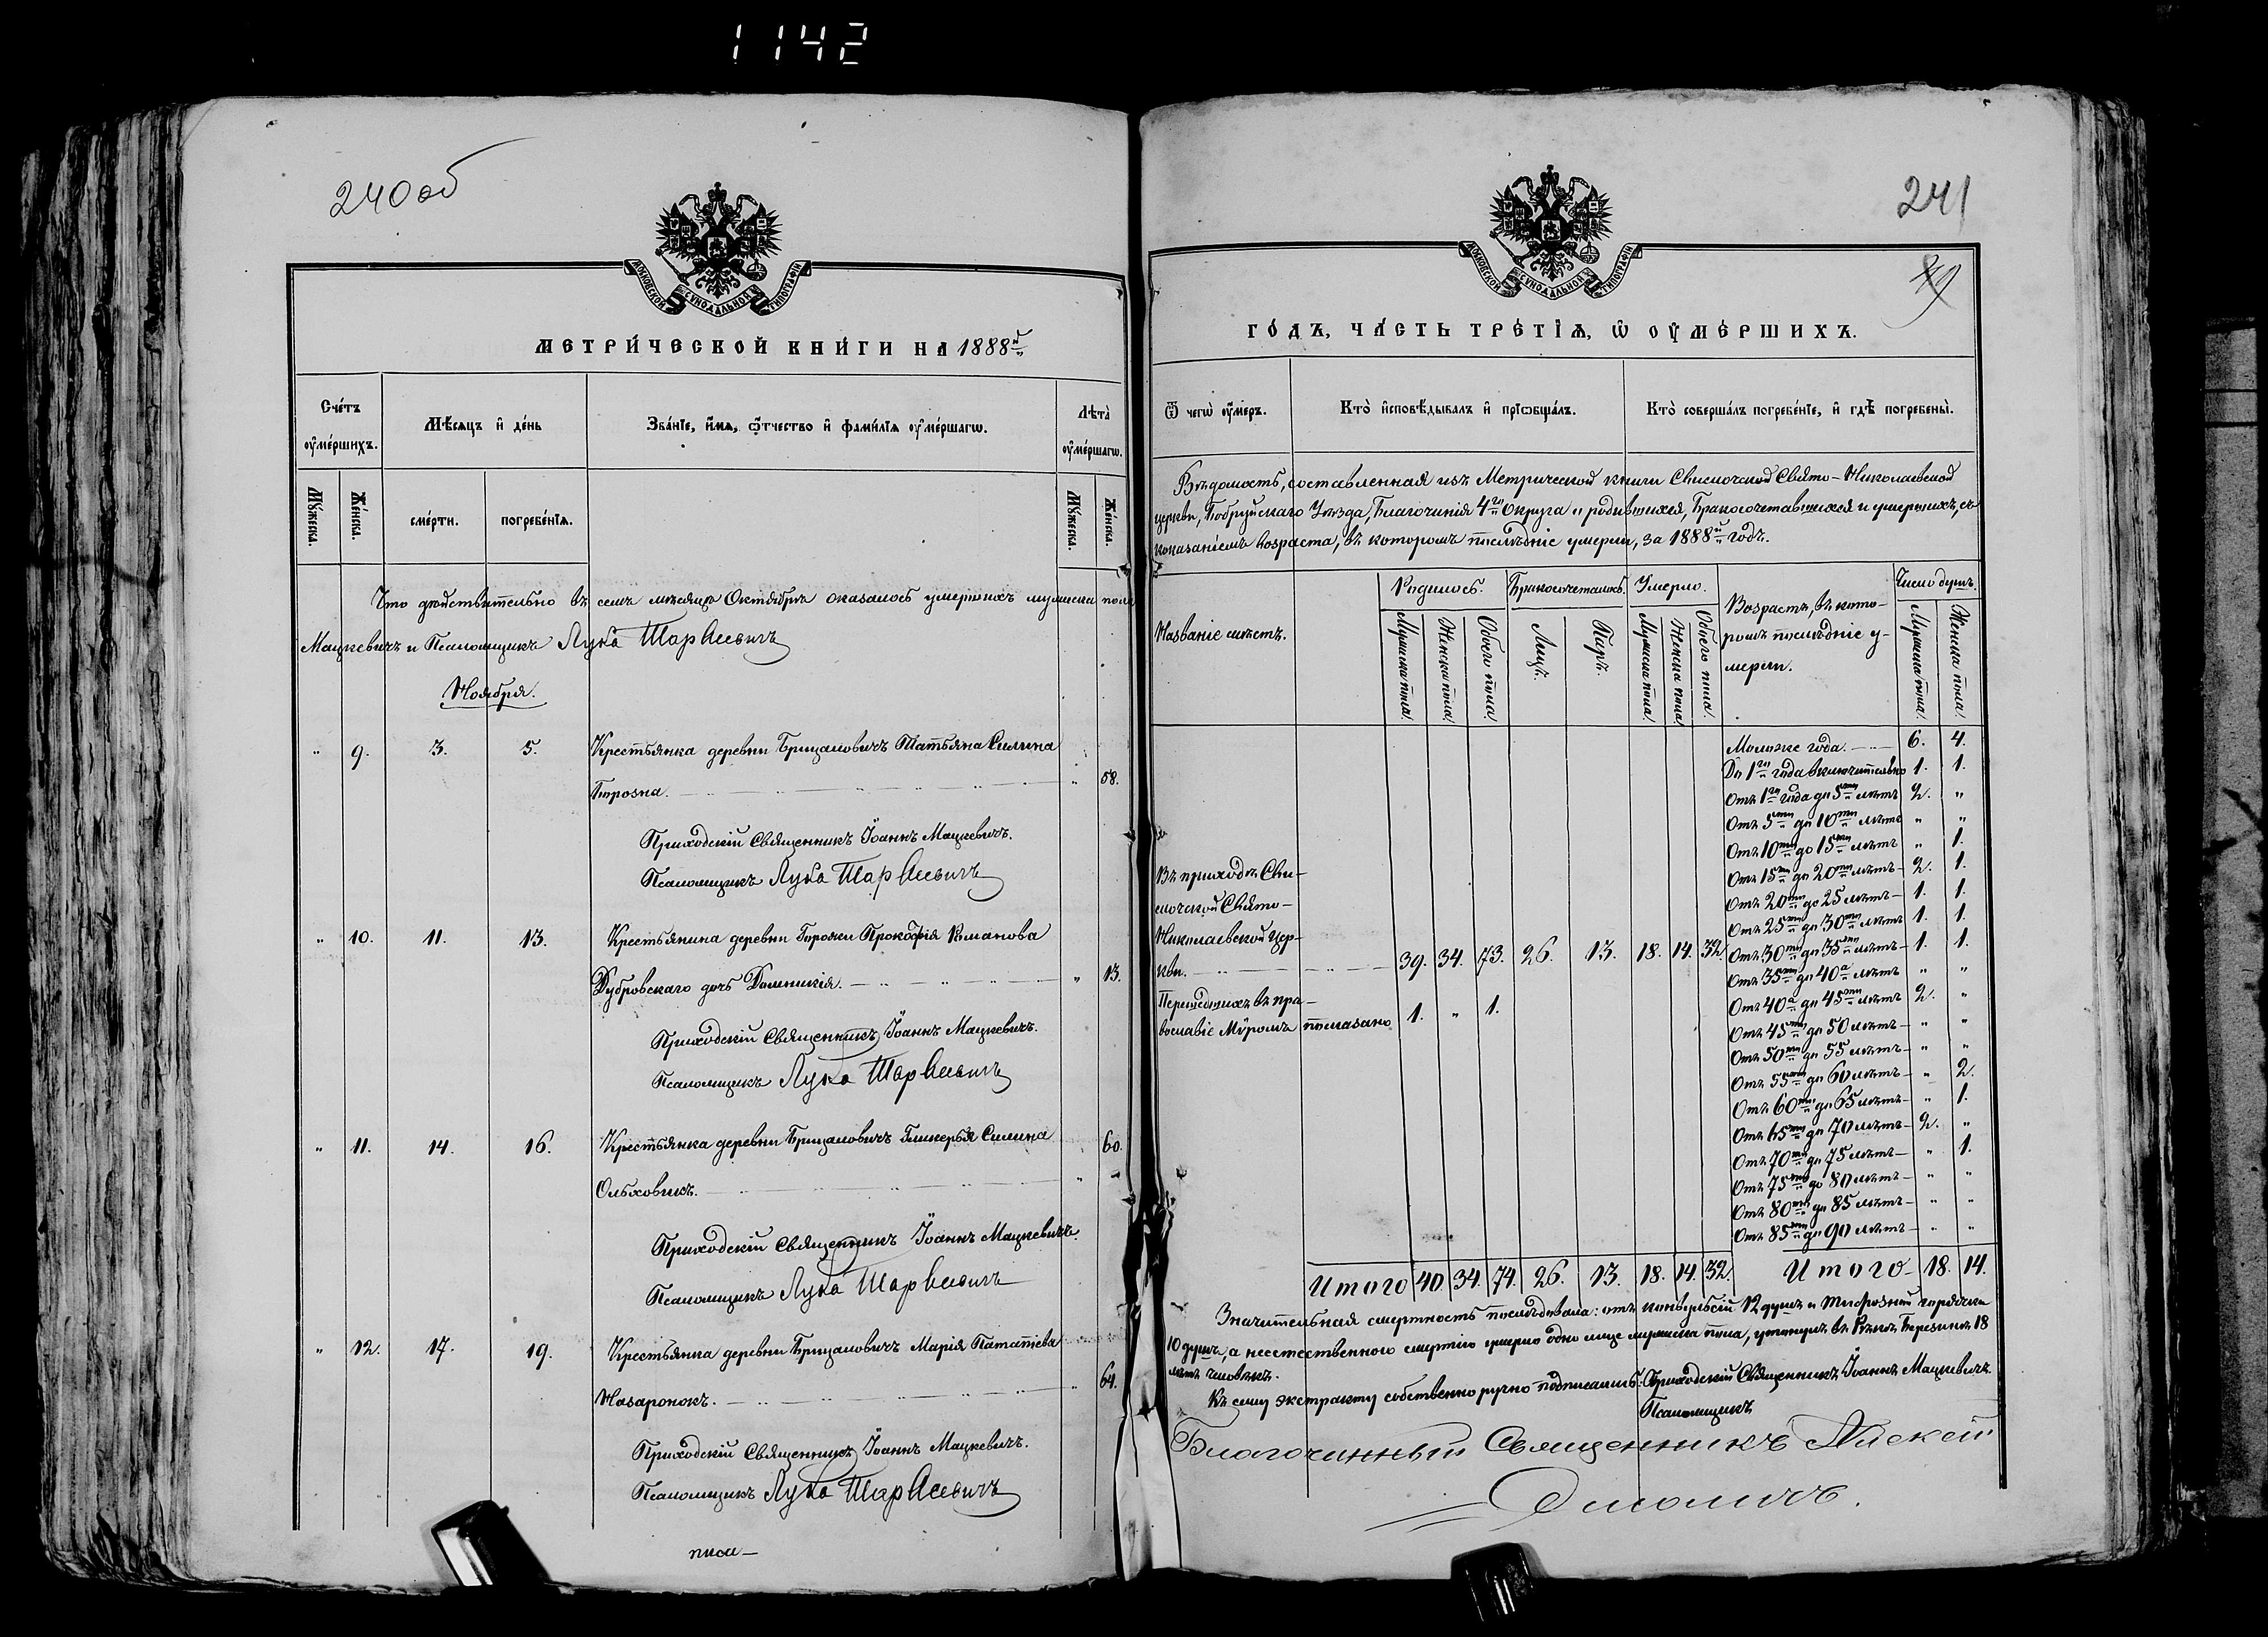 1142
240 об
МОСКОВСКОЙ СѴНОДАЛЬНОЙ ТИПОГРАФІИ
МЕТРИ́ЧЕСКОЙ КНИ́ГИ НА 1888й
Сче́тъ оумéршихъ.
Мѣ́сяцъ и де́нь
Зва́нїе, и́мя, ѻ҆́тчество и фами́лїя оумéршагѡ.
Лѣта̀ оумéршагѡ.
Му́жеска.
Же́нска.
сме́рти.
погребе́нїя.
Му́жеска.
Же́нска.
Что дѣйствительно въ семъ мѣсяцѣ Октябрѣ оказалось умершихъ мужеска пола
Мацкевичъ и Псаломщикъ Лука
Ноября.
" 9. 3. 5. Крестьянка деревни Брицаловичъ Татьяна Силина
" 58.
Приходскій Священникъ Іоаннъ Мацкевичъ.
Псаломщикъ Лука
" 10. 11. 13. Крестьянина деревни Горожи Прокофія Романова
Дубровскаго дочь Домникія. " 13.
Приходскій Священникъ Іоаннъ Мацкевичъ.
Псаломщикъ Лука
" 11. 14. 16. Крестьянка деревни Брицаловичъ Гликерья Силина 60.
Ольховикъ. "
Приходскій Священникъ Іоаннъ Мацкевичъ
Псаломщикъ Лука
" 12. 17. 19. Крестьянка деревни Брицаловичъ Марія
Назаронокъ. " 64.
Приходскій Священникъ Іоаннъ Мацкевичъ.
Псаломщикъ Лука
241
МОСКОВСКОЙ СѴНОДАЛЬНОЙ ТИПОГРАФІИ
ГО́ДЪ, ЧА́СТЬ ТРЕ́ТЇЯ, Ѡ ОУМЕ́РШИХЪ.
Ѿ чегѡ̀ оу́меръ.
Кто̀ и҆сповѣ́дывалъ и҆ прїѡбща́лъ.
Кто̀ соверша́лъ погребе́нїе, и҆ гдѣ̀ погребены̀.
Вѣдомость, составленная изъ Метрической книги Свислочской Свято-Николаевской
церкви, Бобруйскаго Уѣзда, Благочинія 4го Округа о родившихся, бракосочетавшихся и умершихъ, съ
показаніемъ возраста, въ которомъ послѣдніе умерли, за 1888й годъ.
Названіе мѣстъ.
Родилось.
Бракосочеталось.
Умерло.
Возрастъ, въ кото-
ромъ послѣдніе у-
мерли.
Число душъ.
Мужеска пола.
Женска пола.
Обоего пола.
Лицъ.
Паръ.
Мужеска пола.
Женска пола.
Обоего пола.
Мужеска пола.
Женска пола.
Въ приходѣ Сви-
слочской Свято-
Николаевской цер-
кви. 39. 34. 73. 26. 13. 18. 14. 32.
Перешедшихъ въ пра-
вославіе Мѵромъ помазано 1. " 1.
Моложе года. 6. 4.
До 1го года включительно 1. 1.
Отъ 1го года до 5ти лѣтъ 2. "
Отъ 5ти до 10ти лѣтъ " "
Отъ 10ти до 15ти лѣтъ " 1.
Отъ 15ти до 20ти лѣтъ 2. 1.
Отъ 20ти до 25 лѣтъ 1. 1.
Отъ 25ти до 30ти лѣтъ 1. 1.
Отъ 30ти до 35ти лѣтъ 1. 1.
Отъ 35ти до 40а лѣтъ " "
Отъ 40а до 45ти лѣтъ 2. "
Отъ 45ти до 50 лѣтъ " "
Отъ 50ти до 55 лѣтъ " "
Отъ 55ти до 60 лѣтъ " 2.
Отъ 60ти до 65 лѣтъ " 1.
Отъ 65ти до 70 лѣтъ 2. "
Отъ 70ти до 75 лѣтъ " 1.
Отъ 75ти до 80 лѣтъ " "
Отъ 80ти до 85 лѣтъ " "
Отъ 85ти до 90 лѣтъ " "
Итого 40 34. 74. 26. 13. 18. 14. 32. Итого 18. 14.
Значительная смертность послѣдовала: отъ конвульсій 12 душъ и тифозной горячки
10 душъ, а неестественною смертію умерло одно лице мужеска пола, утонулъ въ Рѣкѣ Березинѣ 18
лѣтъ человѣкъ.
Къ сему экстракту собственно ручно подписались: Приходскій Священникъ Іоаннъ Мацкевичъ
Псаломщикъ
Благочинный Священникъ Алексій
Смоличъ.